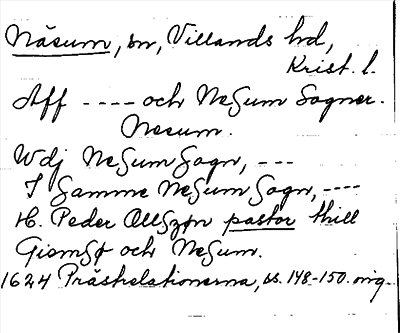 Näsum, sn, Villands hd,
Krist. l.
Aff ---- och NeSum Sogner.
Nesum.
Wdj NeSumSogn, ---
I Samme NeSum Sogn, ----
H. Peder OllSzøn pastor thill
GiemSø och NeSum.
1624 Prästrelationerna, ss. 148-150. orig.